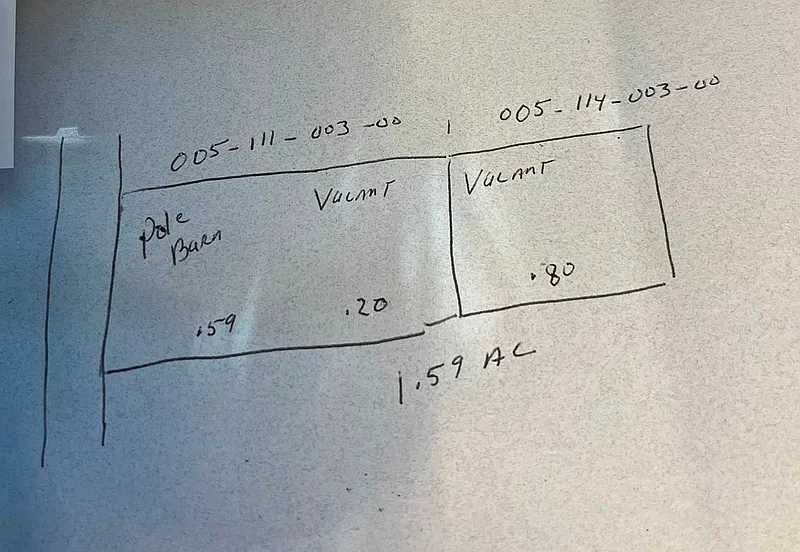 005-111-003-00
005-114-003-00
Pole
Barn
Vacant
Vacant
.59
.20
.80
1.59 AC